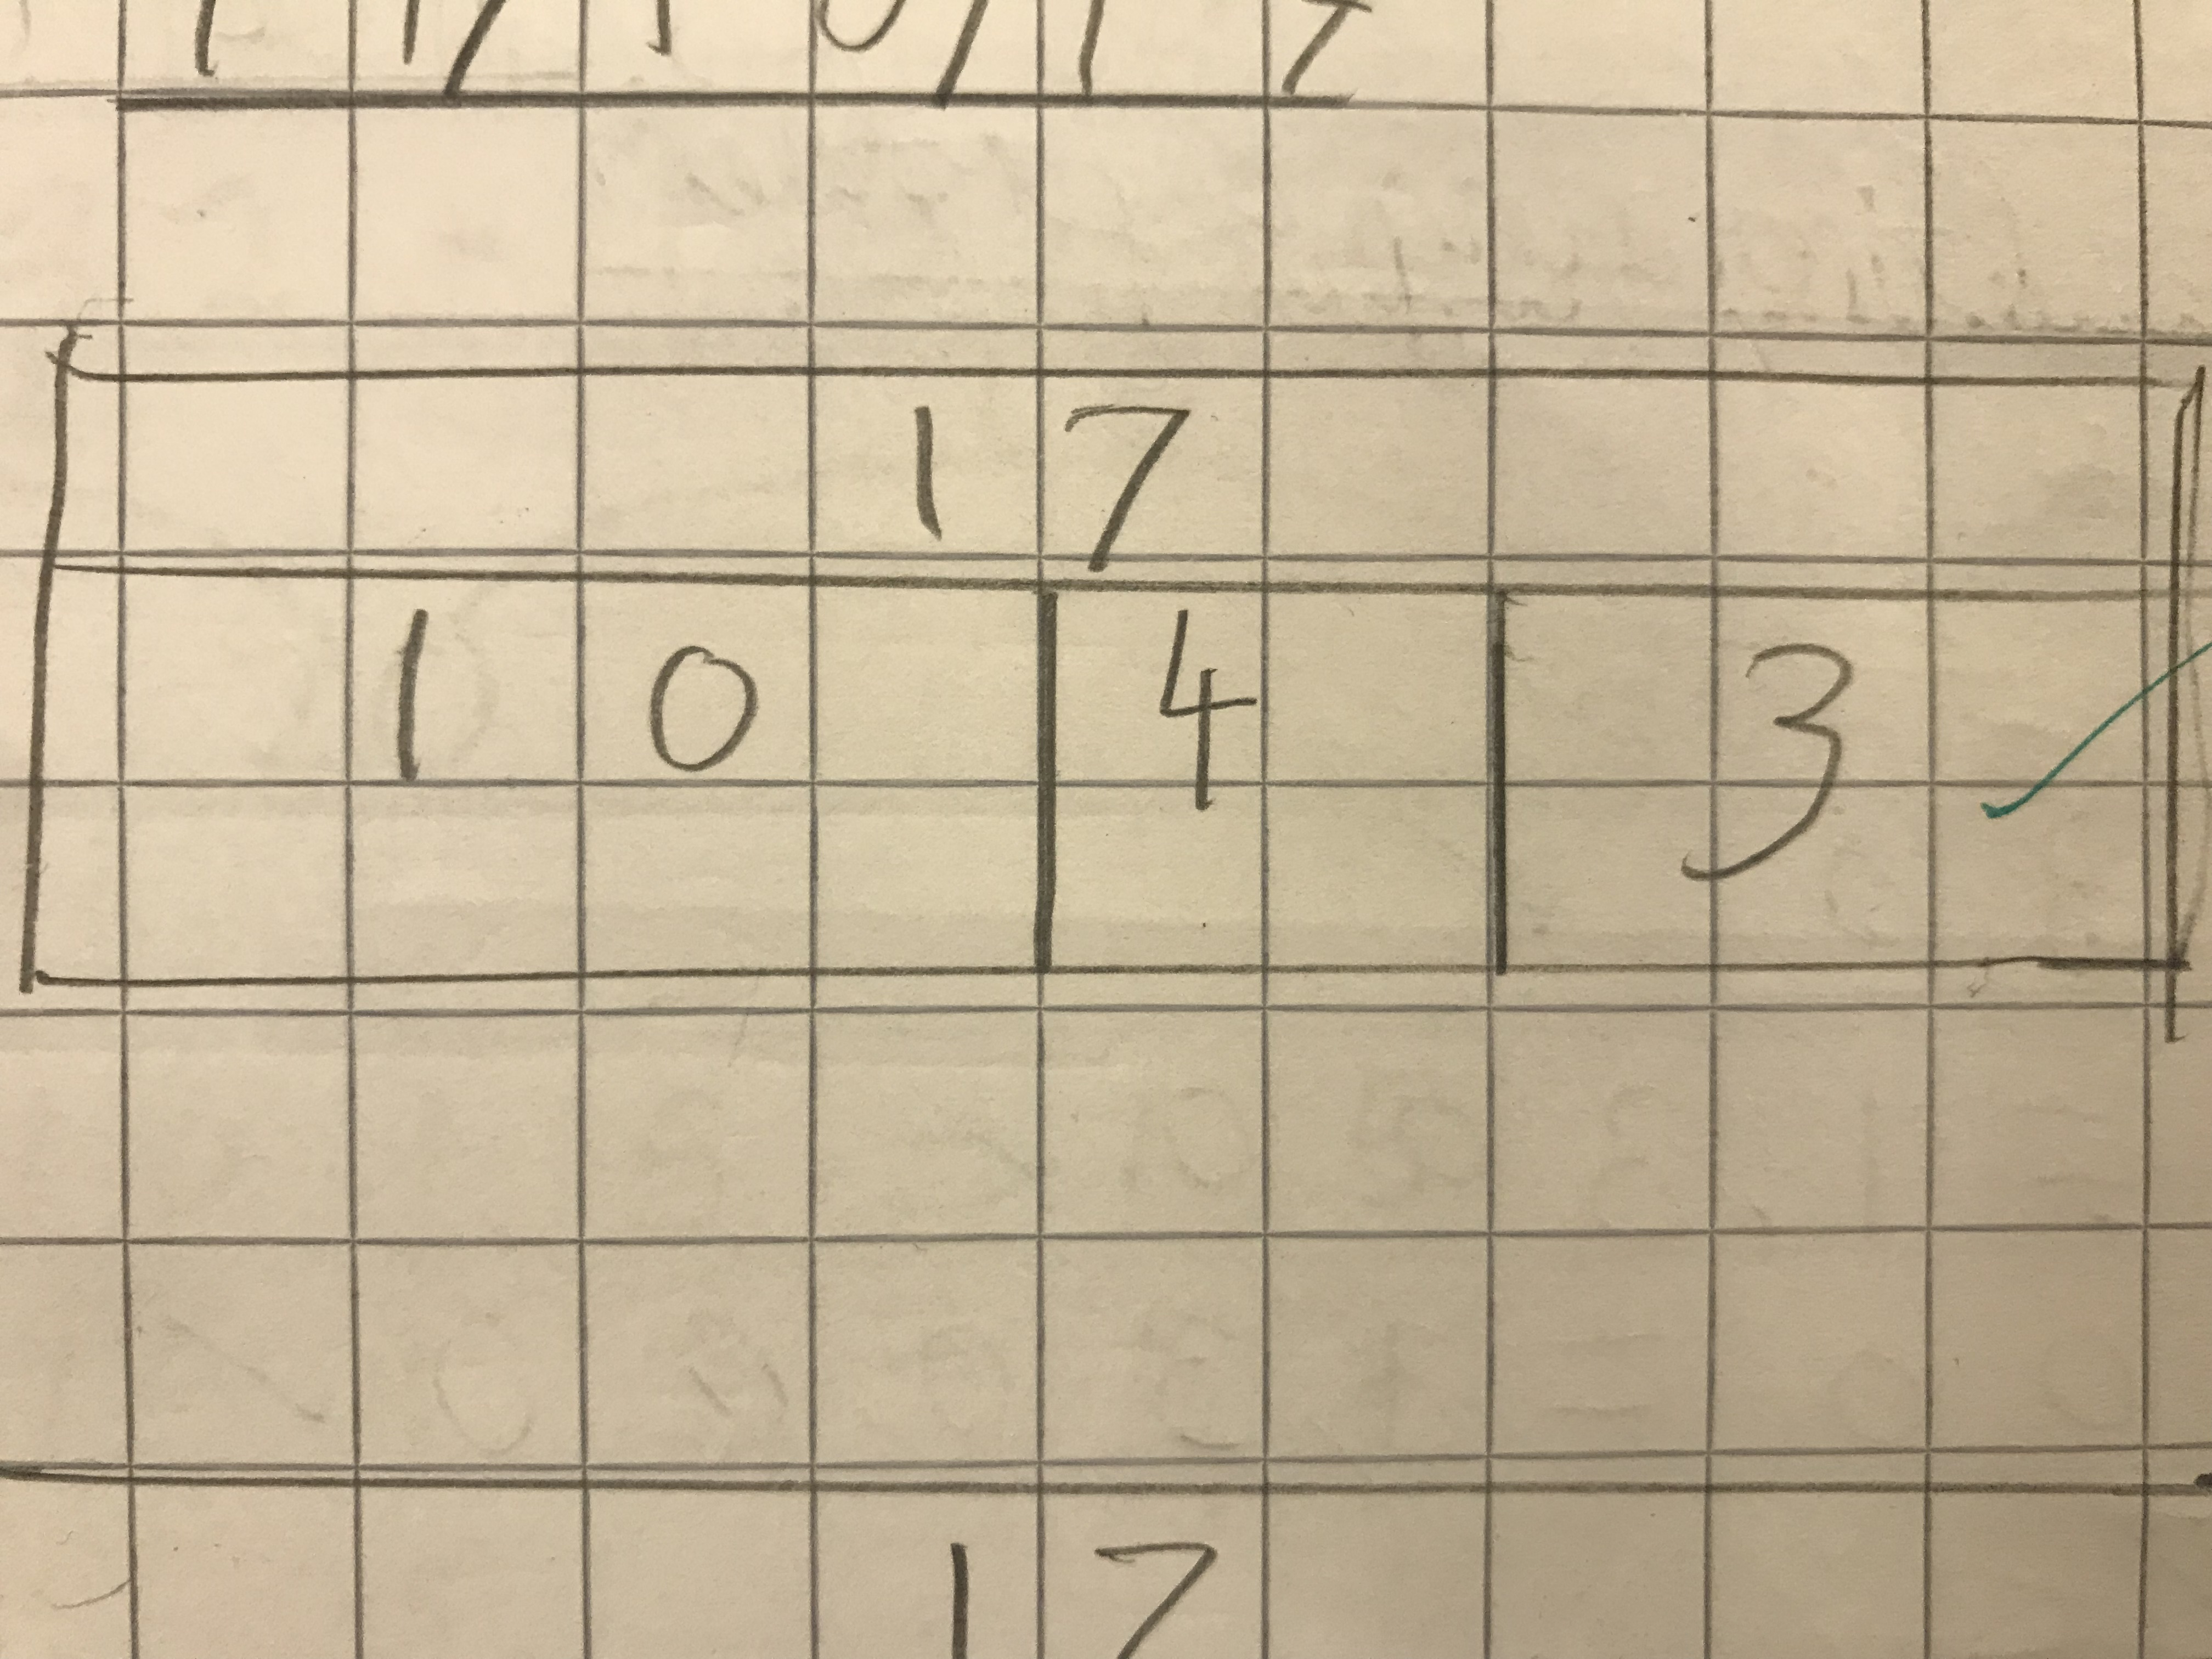 17
10 4 3
17